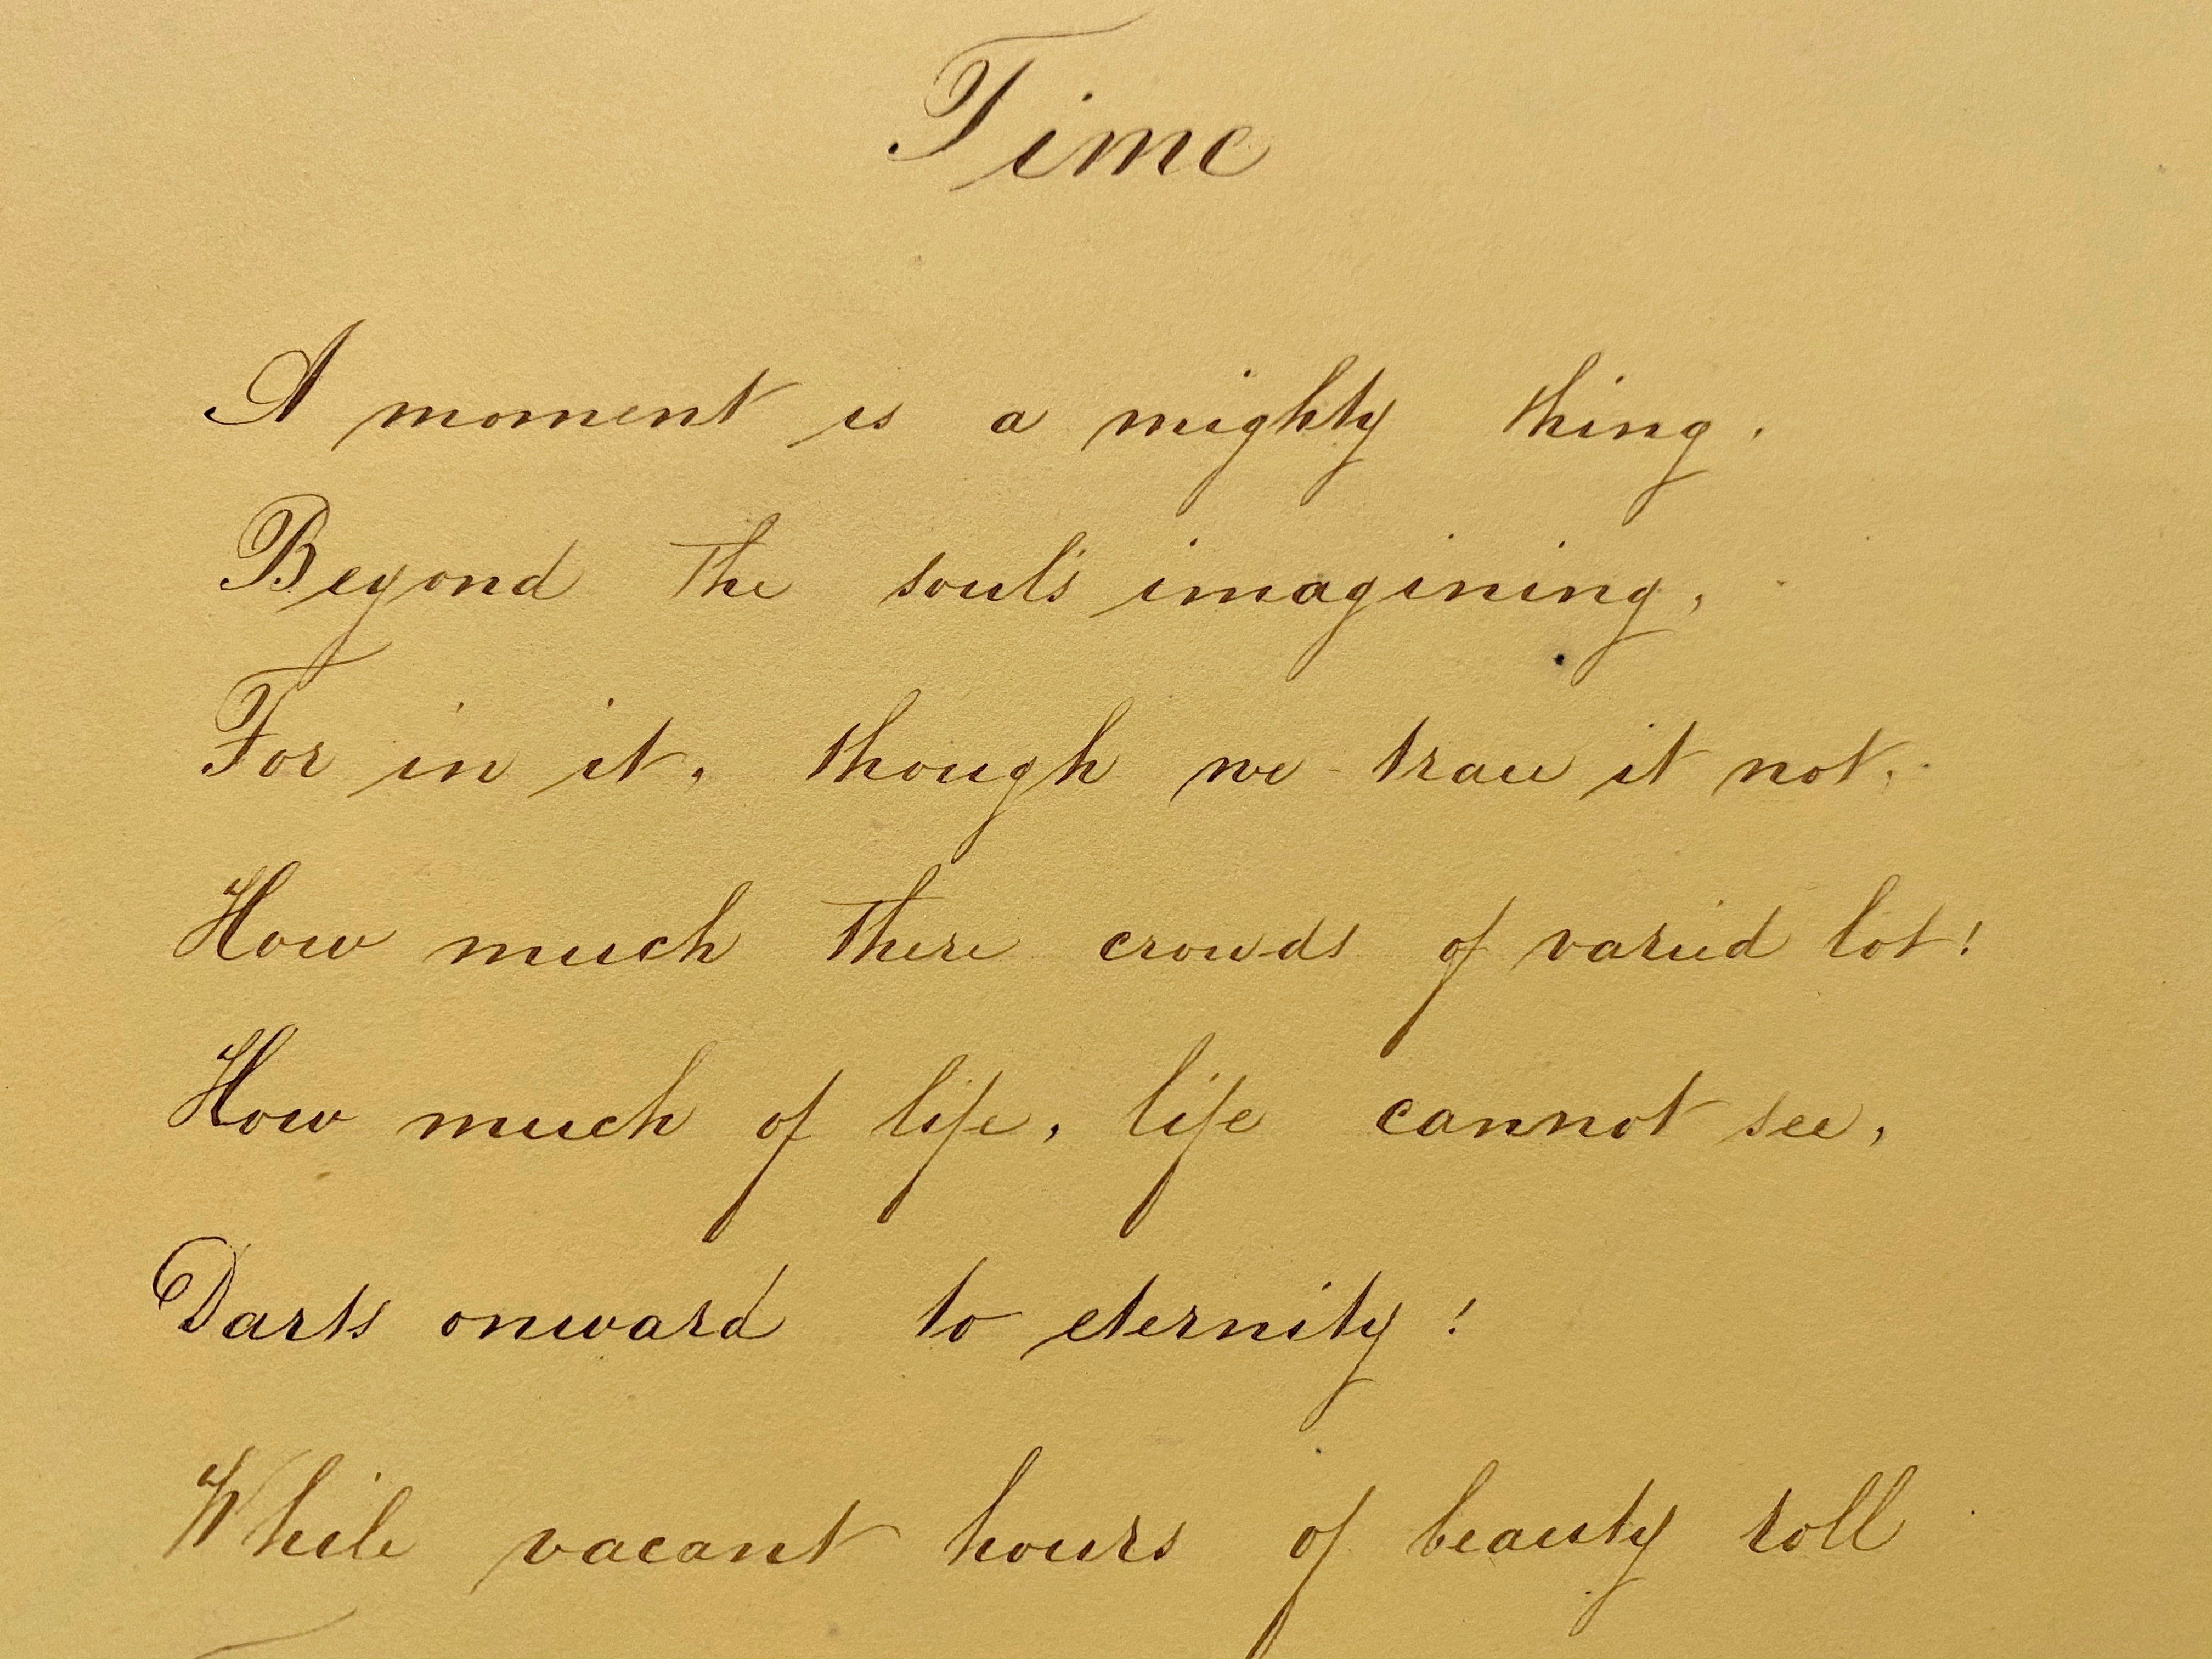 Time
A moment is a mighty thing.
Beyond the soul's imagining,
For in it, though we trace it not,
How much there crowds of varied lot!
How much of life, life cannot see,
Darts onward to eternity!
While vacant hours of beauty roll